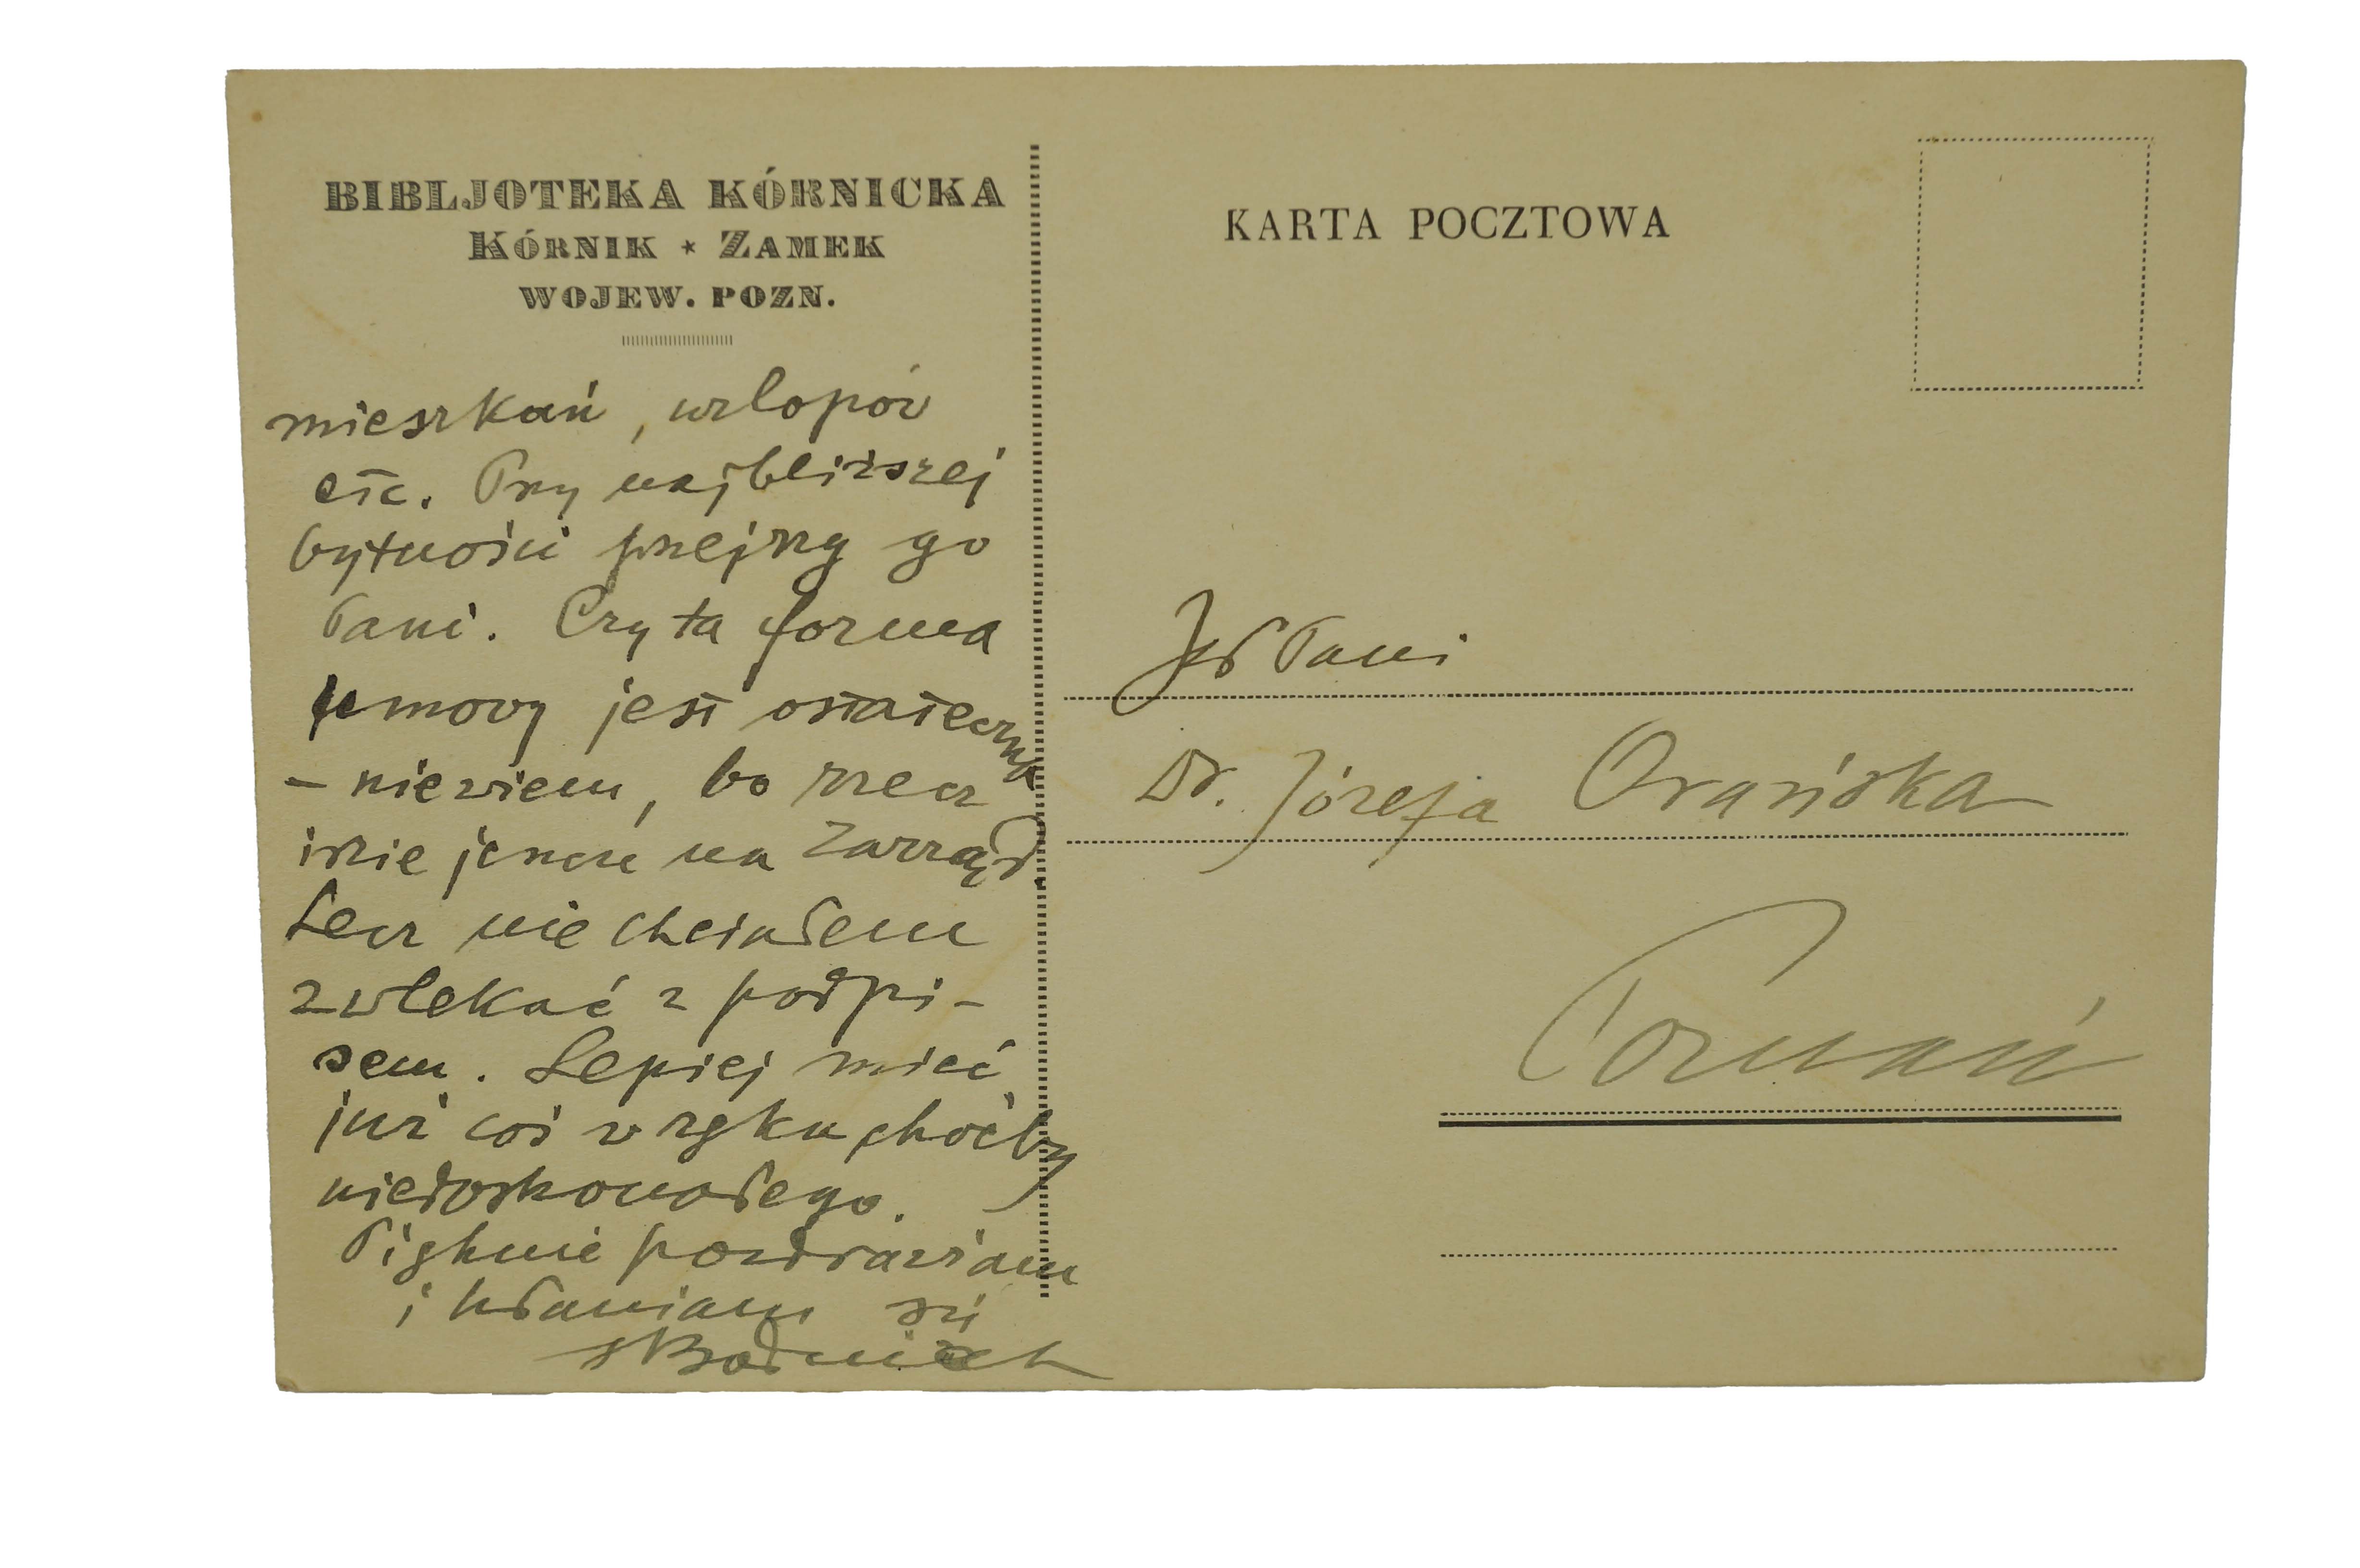 BIBLJOTEKA KÓRNICKA
KÓRNIK * ZAMEK
WOJEW. POZN.
mieszkań, urlopów
etc. Przy najbliższej
bytności przejrzę go
Pani. Czy ta forma
umowy jest ostateczna
– nie wiem, bo rzecz
idzie jeszcze na Zarząd.
Lecz nie chciałem
zwlekać z podpi-
sem. Lepiej mieć
już coś w ręku choćby
niedoskonałego.
Pięknie pozdrawiam
i kłaniam się
SBodniak
KARTA POCZTOWA
Pani
Dr. Józefa Orańska
Poznań